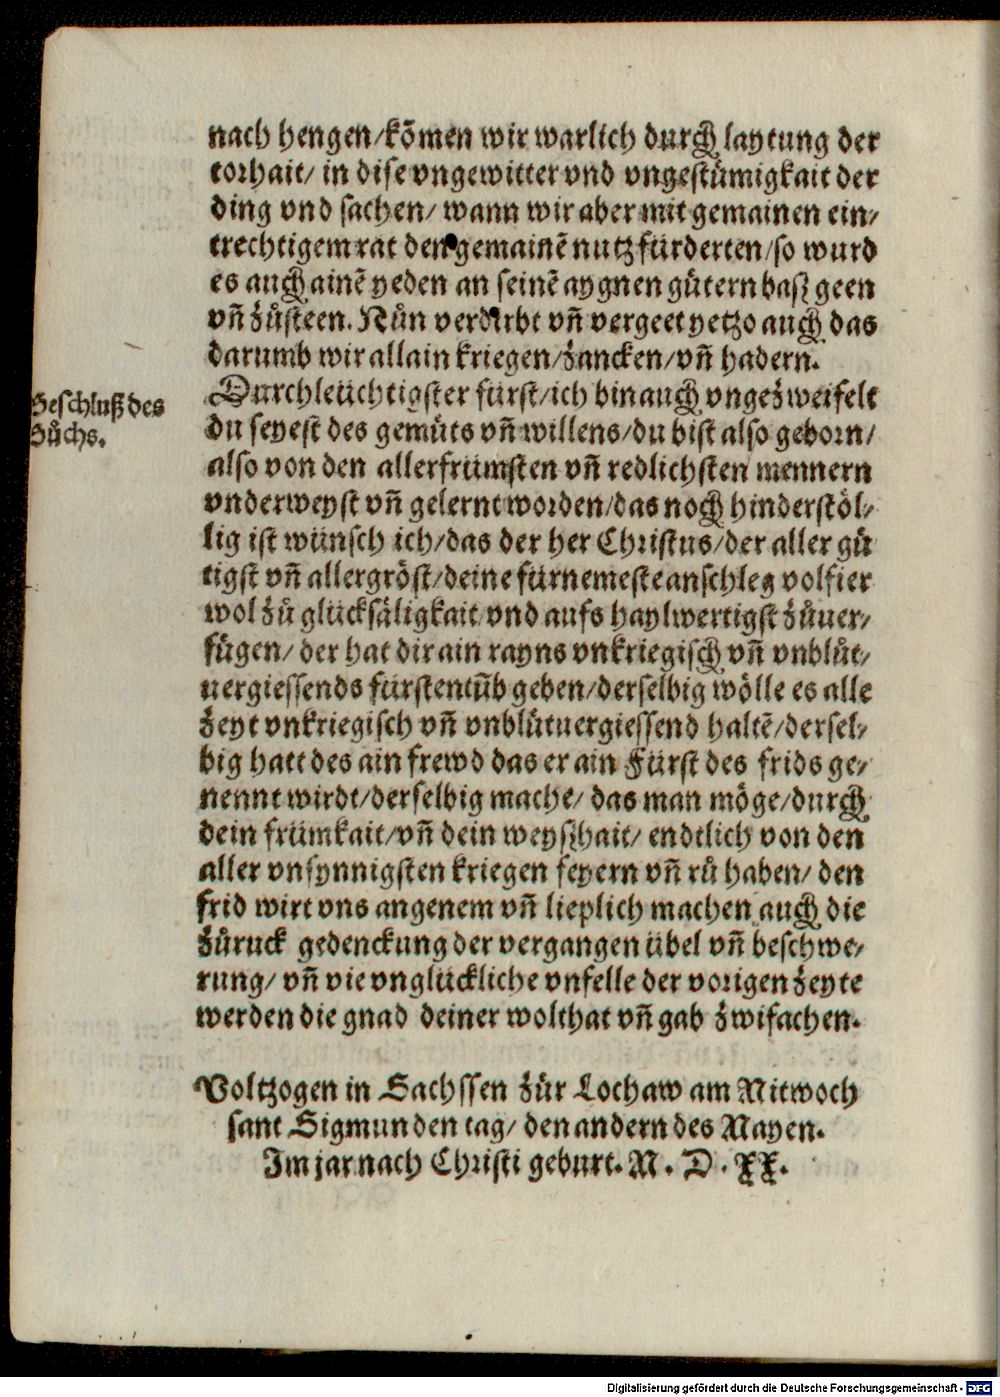 nach hengen/kõmen wir warlich durch laytung der
torhait/ in dise vngewitter vnd vngestümigkait der
ding vnd sachen/ wann wir aber mit gemainen ein/
trechtigem rat den gemainẽ nutz fürderten/so wurd
es auch ainẽ yeden an seinẽ aygnen gütern baß geen
vñ zůsteen. Nůn verdirbt vñ vergeet yetzo auch das
darumb wir allain kriegen/zancken/vñ hadern.
Durchleüchtigster fürst/ich bin auch vngezweifelt
Beschluß des
Bůchs.
du seyest des gemüts vñ willens/du bist also geborn/
also von den allerfrümsten vñ redlichsten mennern
vnderweyst vñ gelernt worden/das noch hinderstöl/
lig ist wünsch ich/das der her Christus/der aller gü
tigst vñ allergröst/deine fürnemeste anschleg volfier
wol zů glücksäligkait vnd aufs haylwertigst zůuer/
fügen/ der hat dir ain rayns vnkriegisch vñ vnblůt/
uergiessends fürstentũb geben/derselbig wölle es alle
zeyt vnkriegisch vñ vnblůtuergiessend haltẽ/dersel/
big hatt des ain frewd das er ain Fürst des frids ge/
nennt wirdt/derselbig mache/ das man möge/durch
dein frümkait/vñ dein weyßhait/ endtlich von den
aller vnsynnigsten kriegen feyern vñ rů haben/ den
frid wirt vns angenem vñ lieplich machen auch die
zůruck gedenckung der vergangen übel vñ beschwe/
rung/ vñ vie vnglückliche vnfelle der vorigen zeyte
werden die gnad deiner wolthat vñ gab zwifachen.
Voltzogen in Sachssen zůr Lochaw am Mitwoch
sant Sigmunden tag/ den andern des Mayen.
Im jar nach Christi geburt. M. D. XX.
Digitalisierung gefördert durch die Deutsche Forschungsgemeinschaft - DFG